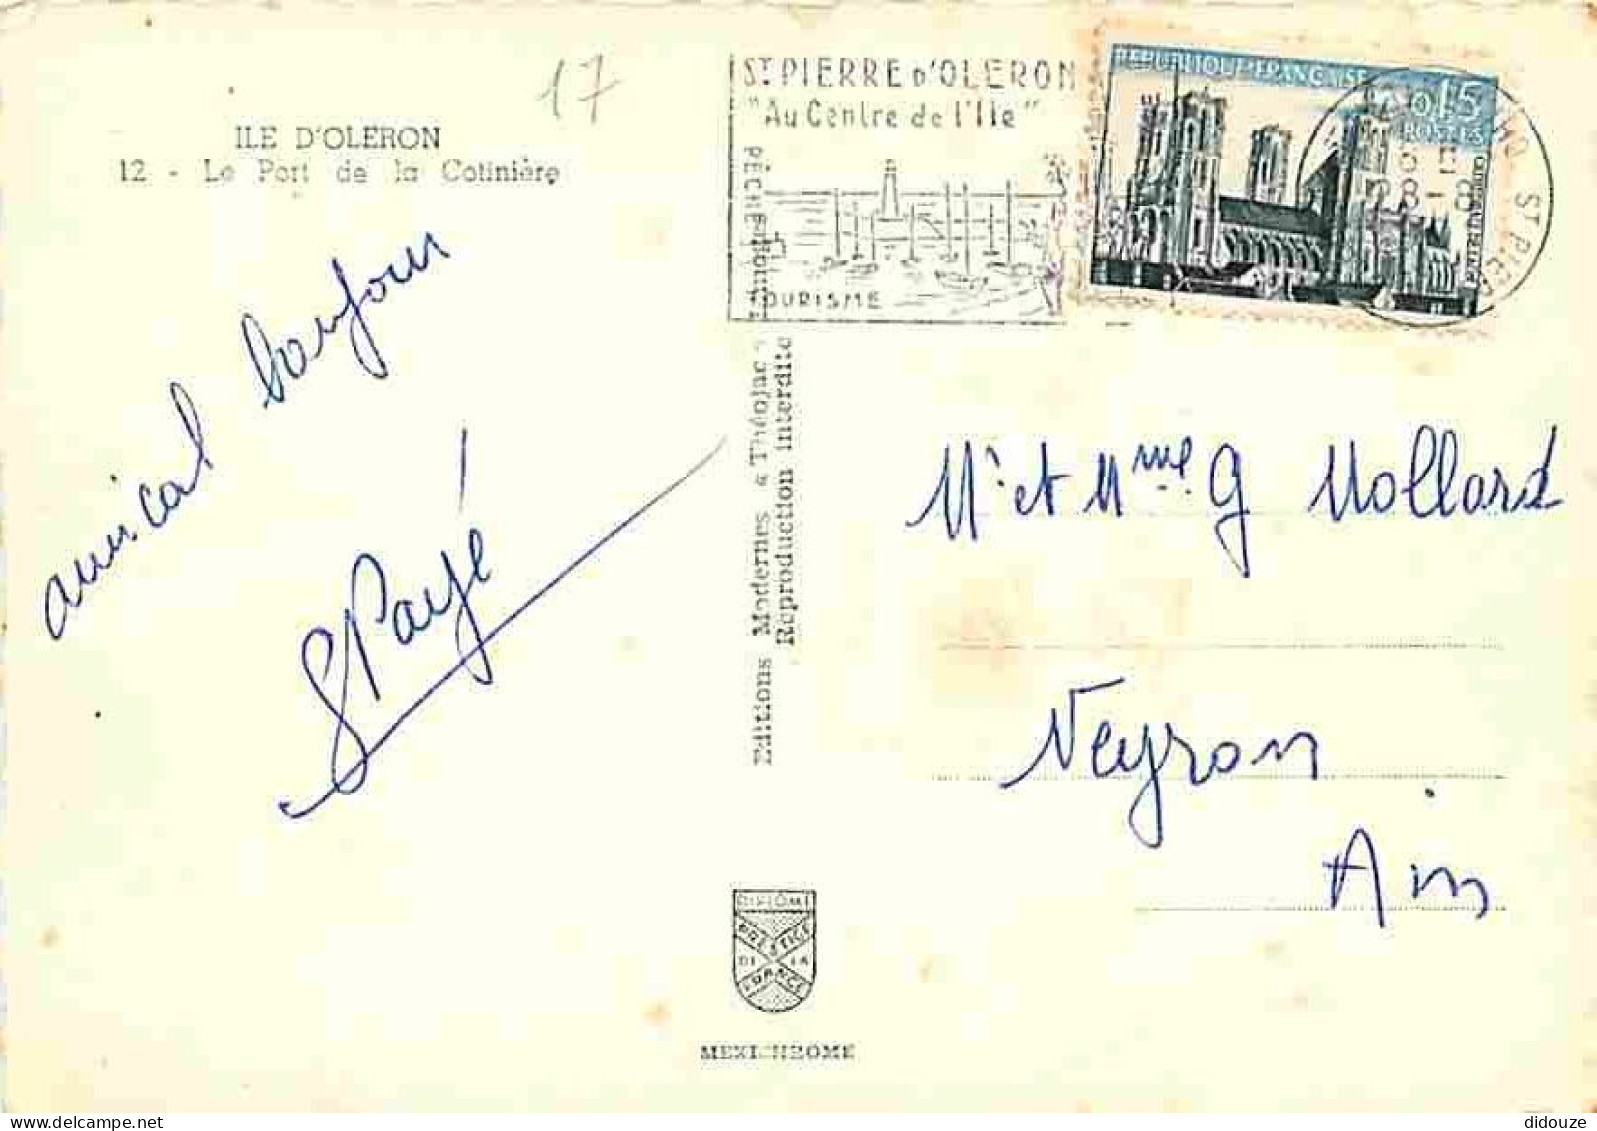 17
ILE D'OLERON
12 - Le Port de la Cotinière
amical bonjour
S Payé
ST PIERRE D'OLERON
"Au Centre de l'Ile"
PÊCHE
TOURISME
REPUBLIQUE FRANÇAISE
0,15
POSTES
ST PIERRE
Editions Modernes « Théojac »
Reproduction interdite
Mr et Mme G Mollard
Neyron
Ain
DIPLOME
PRESTIGE
DE LA
FRANCE
MEXICHROME
didouze @ delcampe.net